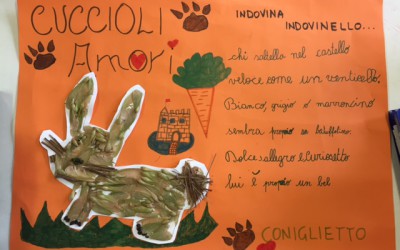 CUCCIOLI
Amori
INDOVINA
INDOVINELLO...
chi saltella nel castello
veloce come un venticello.
Bianco, grigio o marroncino
sembra proprio un batuffolino
Dolce, allegro e curiosetto
lui è proprio un bel
CONIGLIETTO